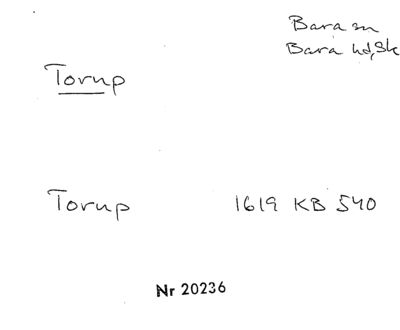 Bara sn
Bara hd, Sk
Torup
Torup 1619 KB 540
Nr 20236